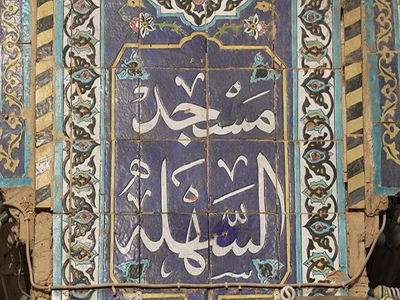 مَسْجد
السَّهْلَة